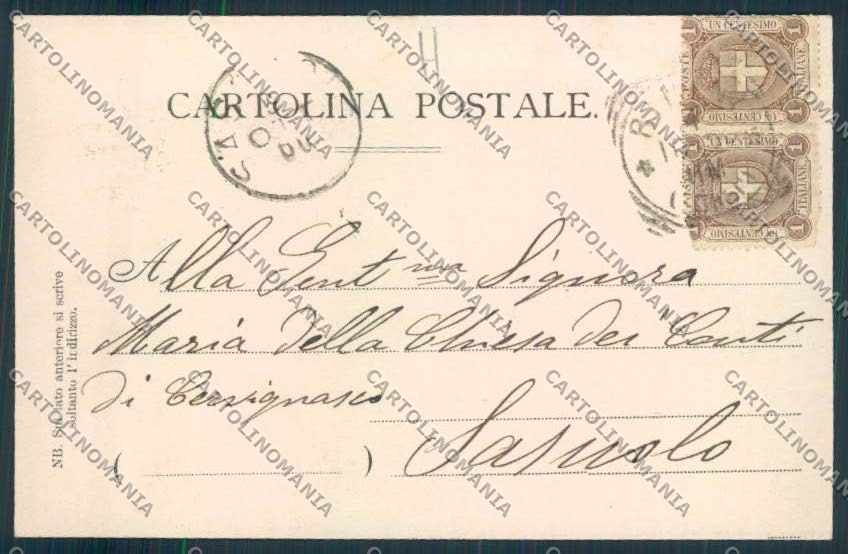 CARTOLINA POSTALE.
UN CENTESIMO
POSTE
ITALIANE
1
1
1
1
UN CENTESIMO
UN CENTESIMO
1
1
1
1
UN CENTESIMO
Alla Gent ma Signora
Maria Della Chiesa dei Conti
di Cervignasco
Sasuolo
(
)
NB. Sul lato anteriore si scrive
soltanto l'indirizzo.
CARTOLINOMANIA